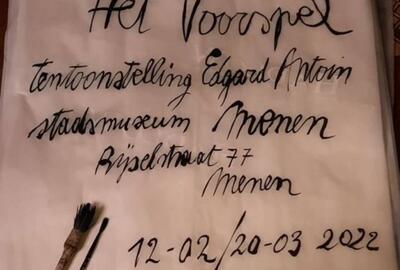 Het Voorspel
tentoonstelling Edgard Antoin
stadsmuseum Menen
Rijselstraat 77
Menen
12-02/20-03 2022